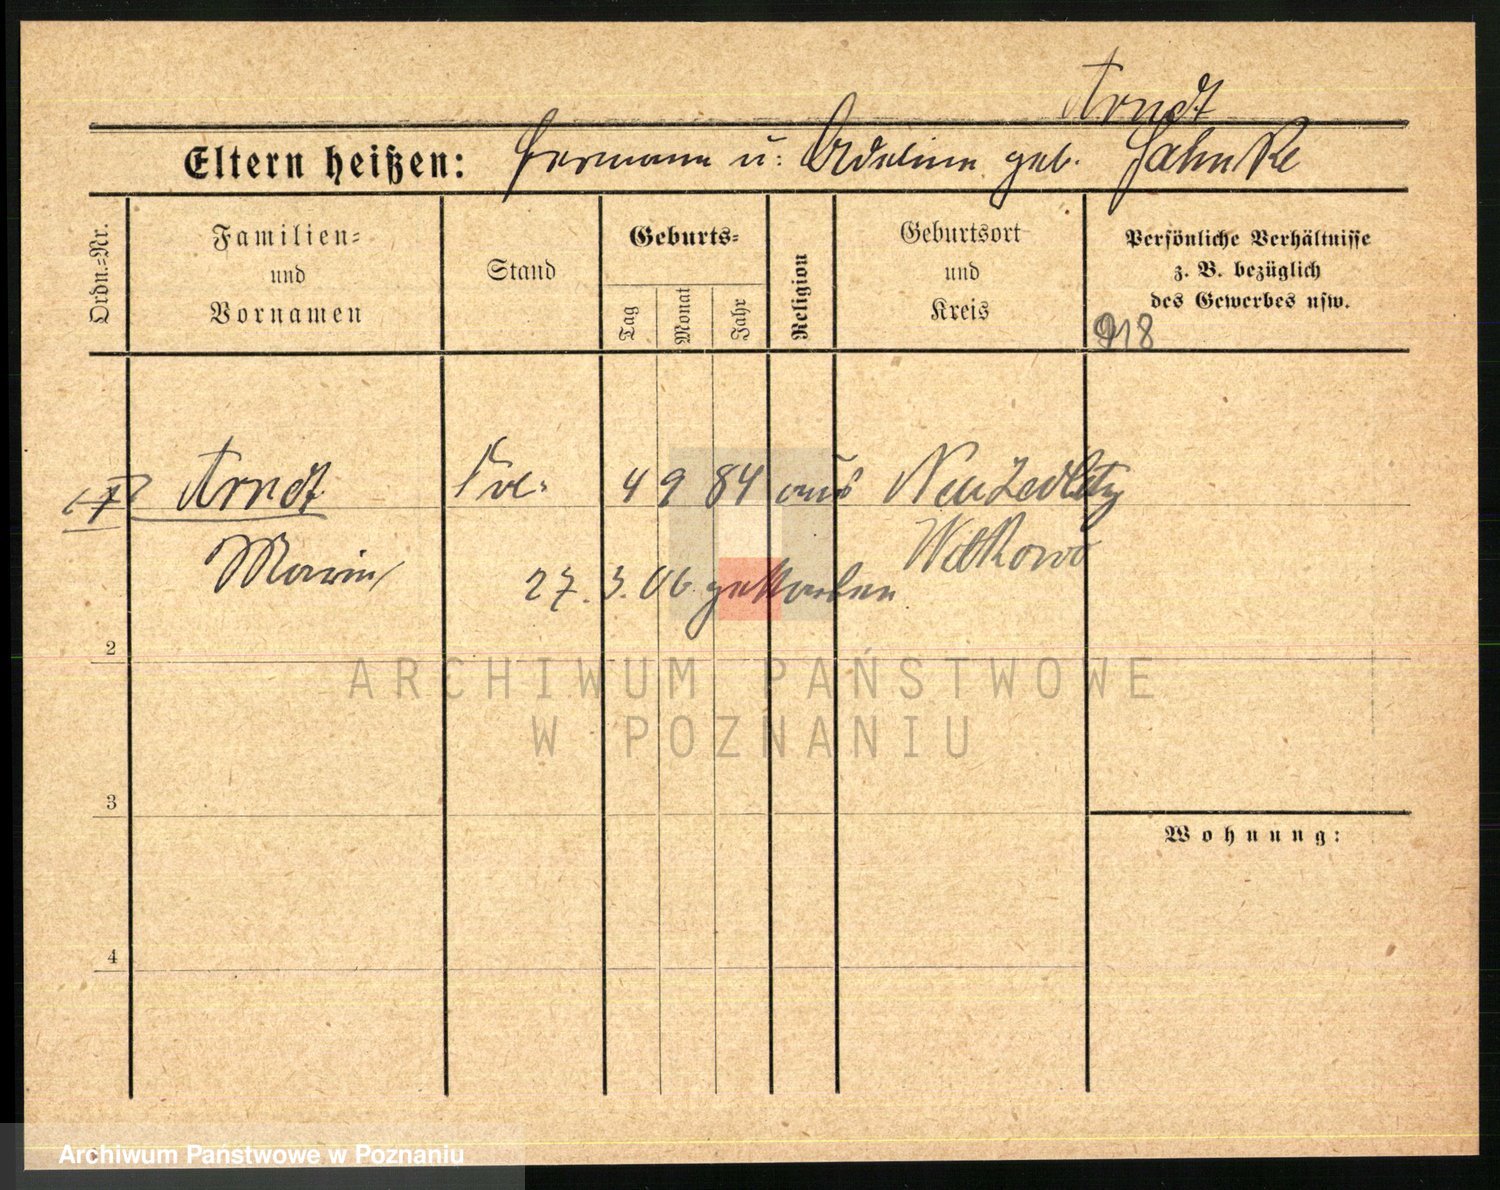 Arndt
Eltern heißen: Hermann u: Adeline geb. Jahnke
Ordn.=Nr.
Familien=
und
Vornamen
Stand
Geburts=
Tag
Monat
Jahr
Religion
Geburtsort
und
Kreis
Persönliche Verhältnisse
z. B. bezüglich
des Gewerbes usw.
918
Arndt 4 9 84 Neuzedlitz
Witkowo
27. 3. 06 gestorben
2
3
4
Wohnung:
ARCHIWUM PAŃSTWOWE
W POZNANIU
Archiwum Państwowe w Poznaniu